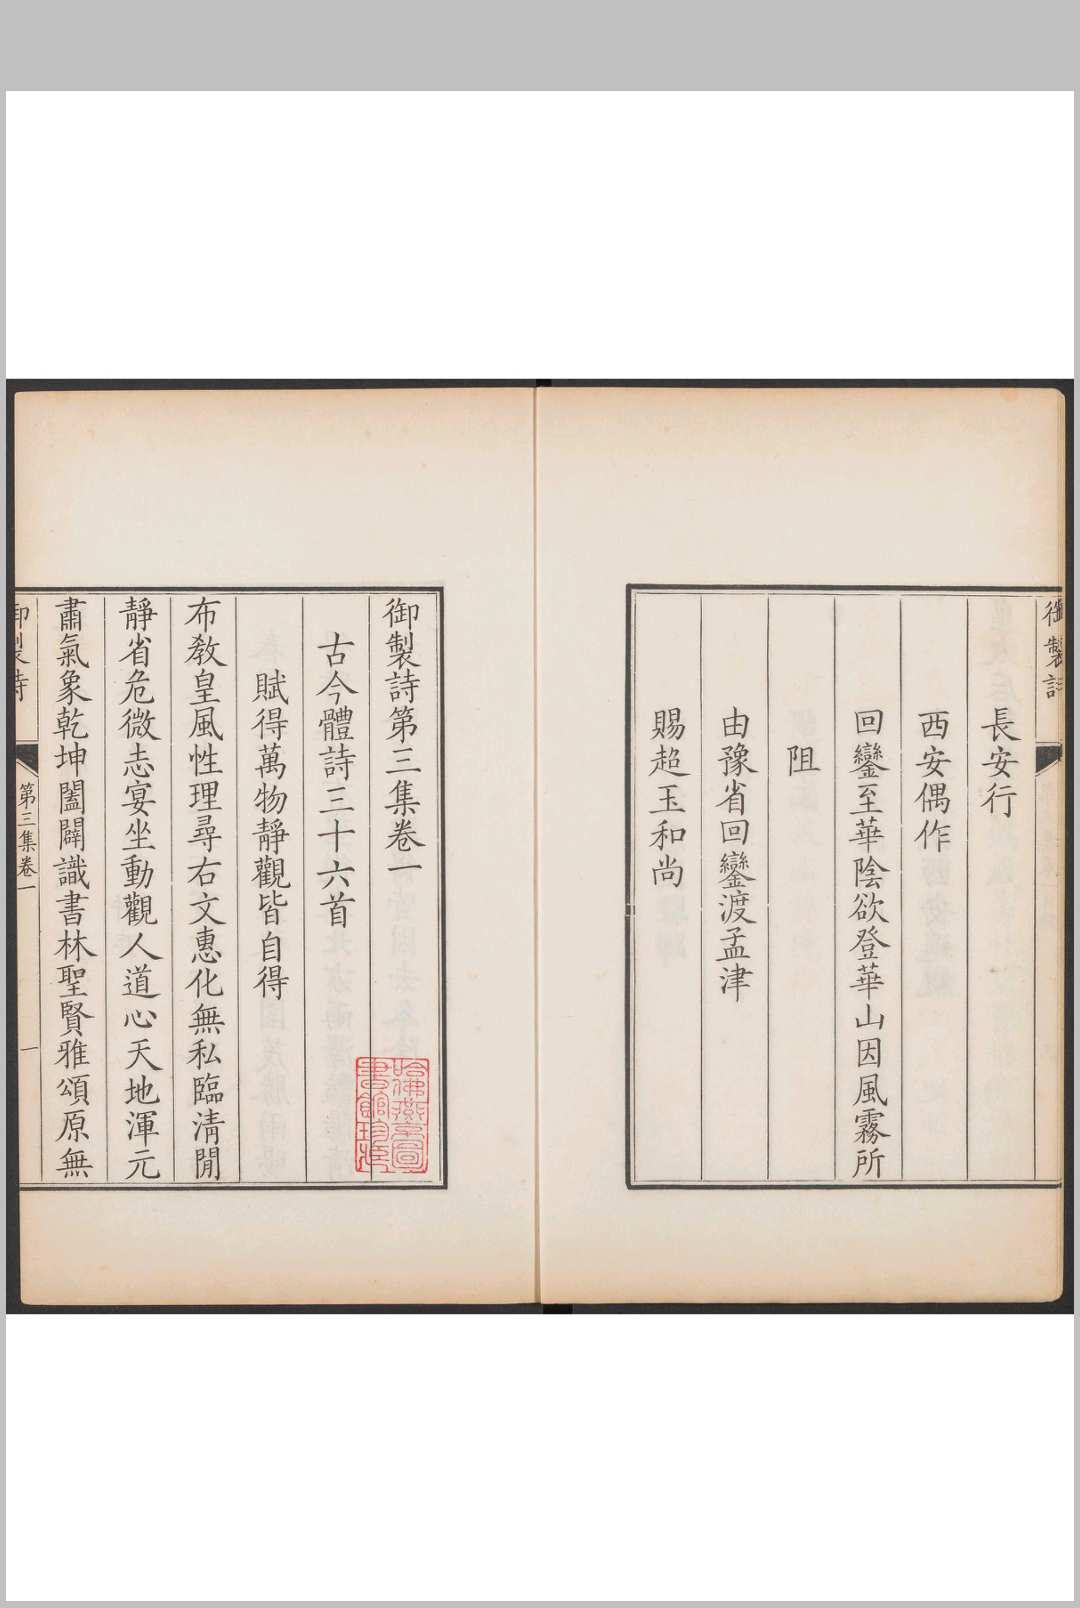 御製詩
長安行
西安偶作
回鑾至華陰欲登華山因風霧所
阻
由豫省回鑾渡孟津
賜超玉和尚
御製詩第三集卷一
古今體詩三十六首
賦得萬物靜觀皆自得
布敎皇風性理尋右文惠化無私臨淸閒
靜省危微志宴坐動觀人道心天地渾元
肅氣象乾坤闔闢識書林聖賢雅頌原無
御製詩
第三集卷一
一
哈佛燕京圖
書館珍藏